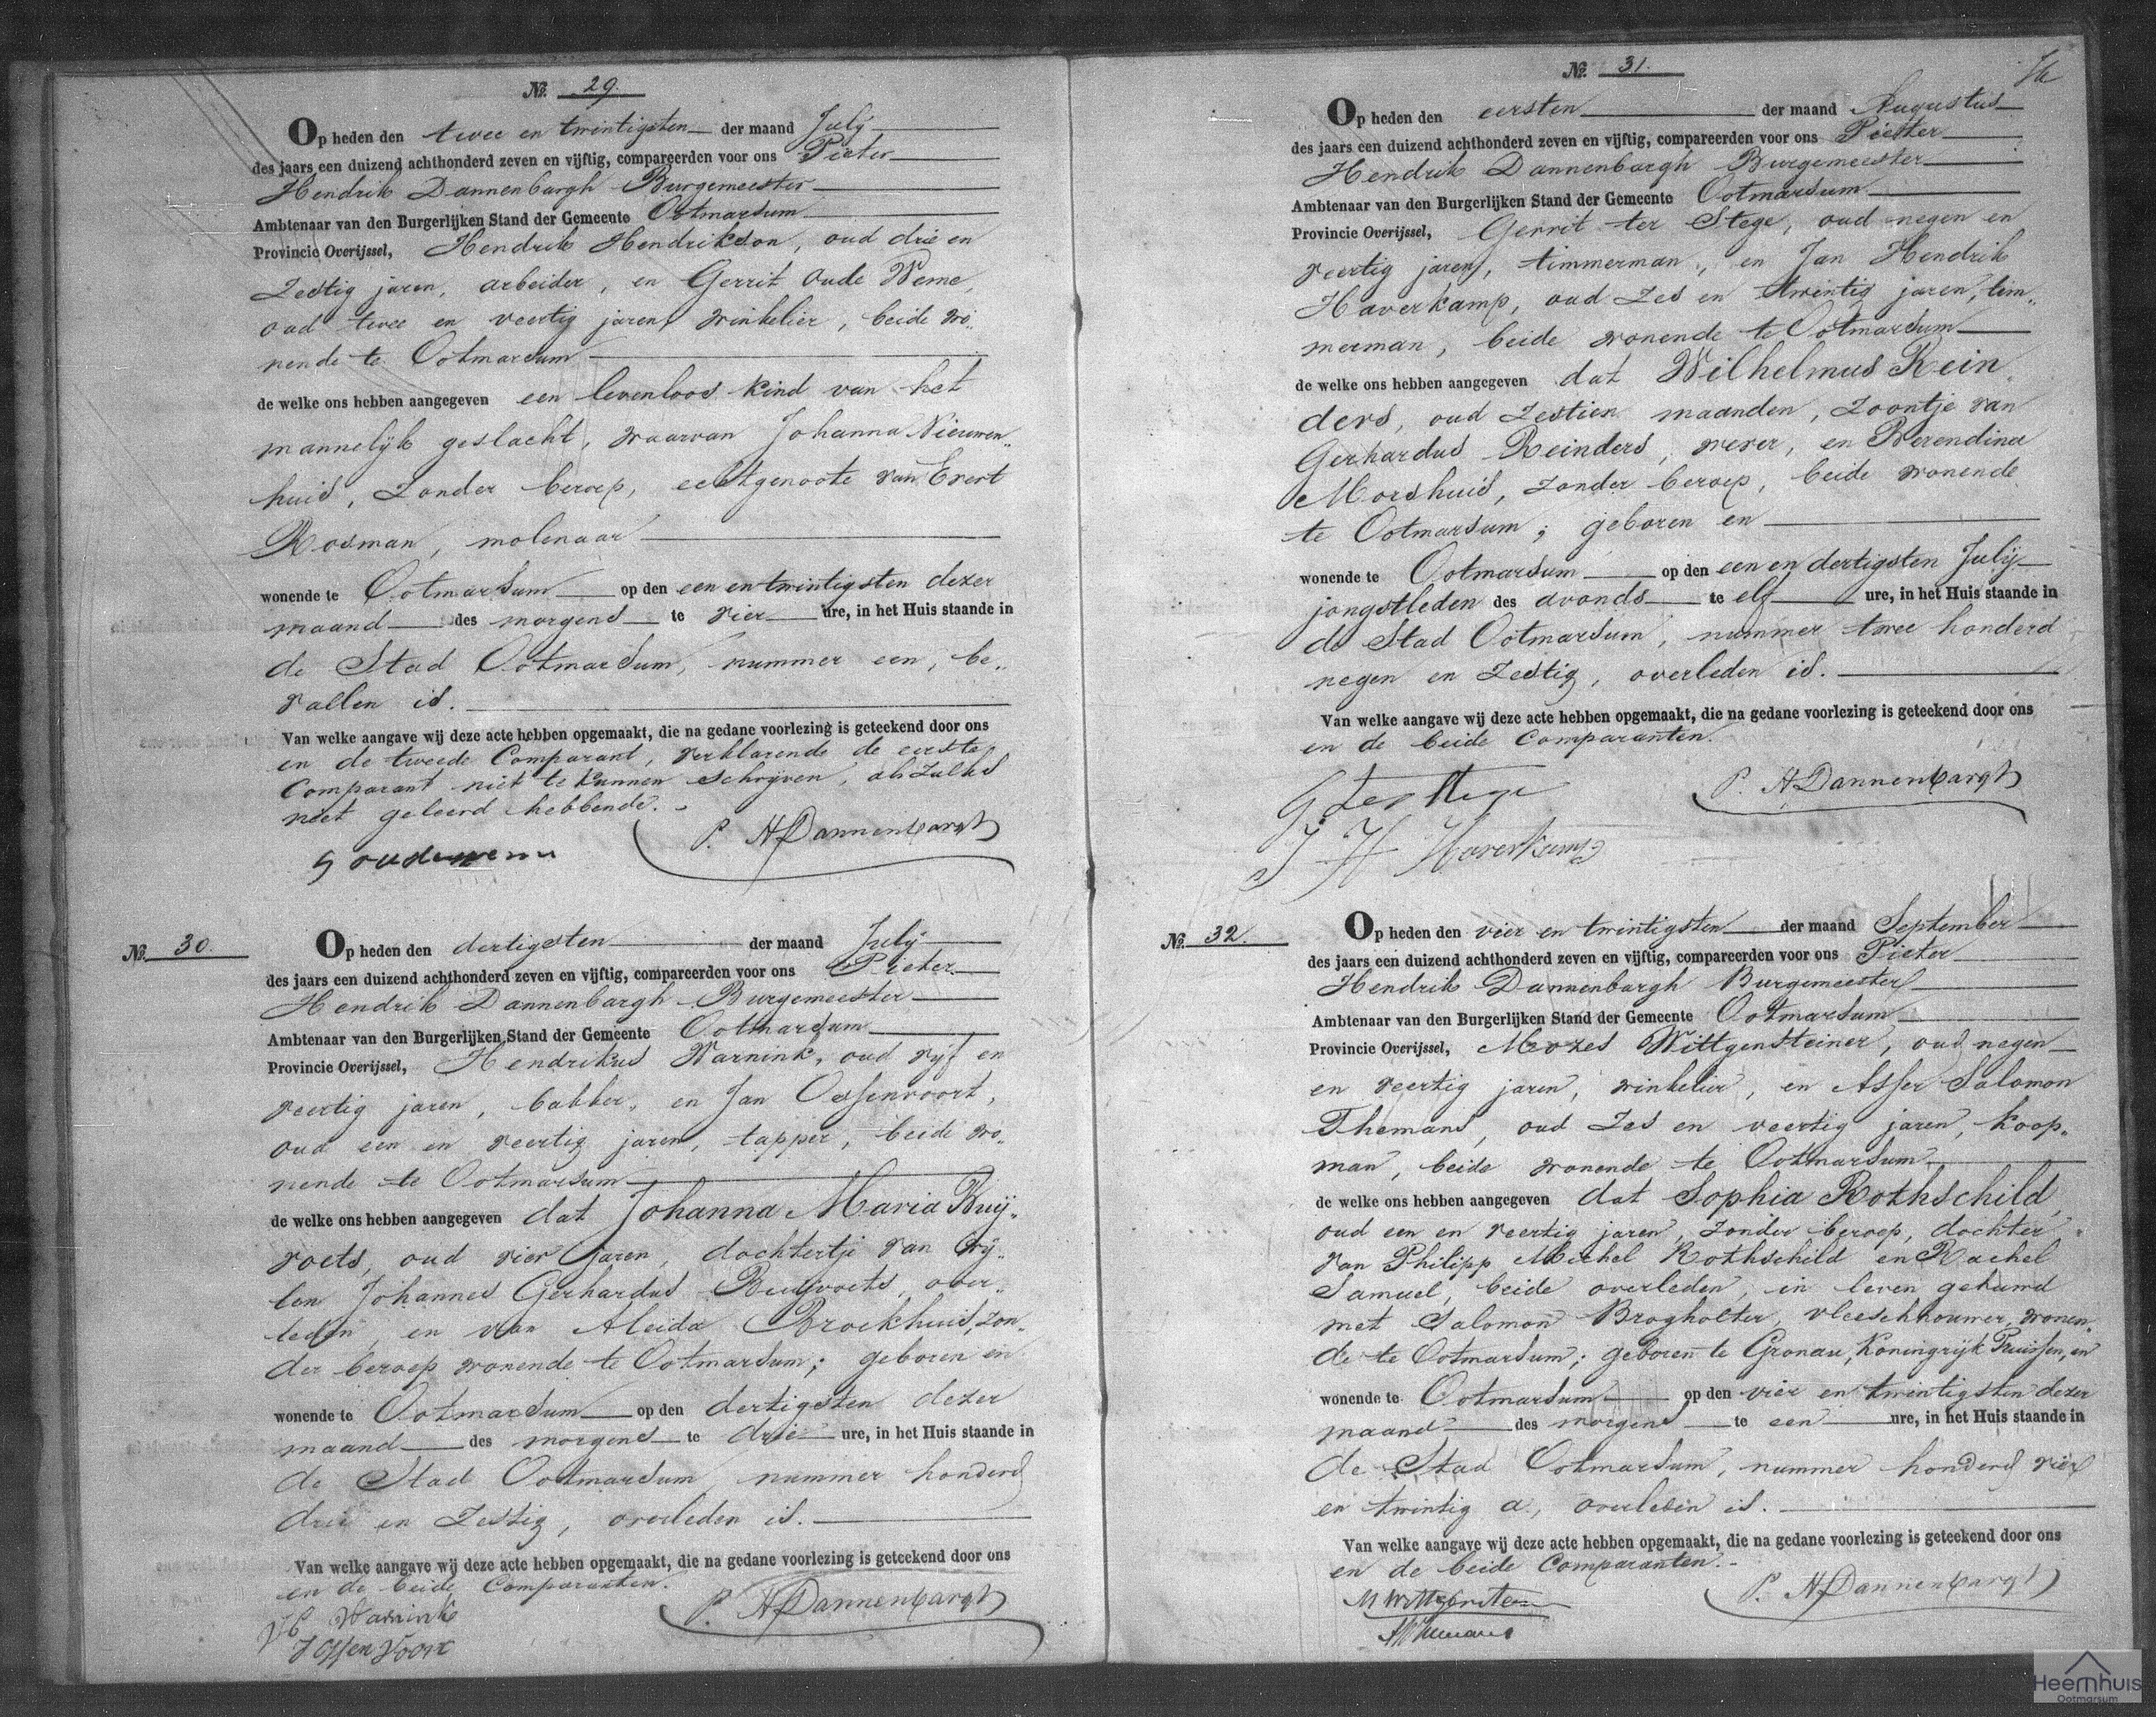 № 29.
Op heden den twee en twintigsten der maand July
des jaars een duizend achthonderd zeven en vijftig, compareerden voor ons Pieter
Hendrik Dannenbargh Burgemeester
Ambtenaar van den Burgerlijken Stand der Gemeente Ootmarsum
Provincie Overijssel, Hendrik Hendrikson, oud drie en
zestig jaren, arbeider, en Gerrit Oude Weme,
oud twee en veertig jaren, winkelier, beide wo„
nende te Ootmarsum
de welke ons hebben aangegeven een levenloos kind van het
mannelijk geslacht, waarvan Johanna Nieuwen„
huis, zonder beroep, echtgenoote van Evert
Rosman, molenaar
wonende te Ootmarsum op den een en twintigsten dezer
maand des morgens te vier ure, in het Huis staande in
de Stad Ootmarsum, nummer een, be„
vallen is.
Van welke aangave wij deze acte hebben opgemaakt, die na gedane voorlezing is geteekend door ons
en de tweede Comparant, verklarende de eerste
Comparant niet te kunnen schrijven, als zulks
niet geleerd hebbende.
P. H Dannenbargh
G oudeweme
№ 30.
Op heden den dertigsten der maand July
des jaars een duizend achthonderd zeven en vijftig, compareerden voor ons Pieter
Hendrik Dannenbargh Burgemeester
Ambtenaar van den Burgerlijken Stand der Gemeente Ootmarsum
Provincie Overijssel, Hendrikus Warnink, oud vijf en
veertig jaren, bakker, en Jan Ossenvoort,
oud een en veertig jaren, tapper, beide wo„
nende te Ootmarsum
de welke ons hebben aangegeven dat Johanna Maria Buij„
voets, oud vier jaren, dochtertje van wij„
len Johannes Gerhardus Buijvoets, over„
leden, en van Aleida Broekhuis, zon„
der beroep wonende te Ootmarsum; geboren en
wonende te Ootmarsum op den dertigsten dezer
maand des morgens te drie ure, in het Huis staande in
de Stad Ootmarsum nummer honderd
drie en zestig, overleden is.
Van welke aangave wij deze acte hebben opgemaakt, die na gedane voorlezing is geteekend door ons
en de beide Comparanten.
P. H Dannenbargh
H Warnink
J Ossenvoort
№ 31.
Op heden den eersten der maand Augustus
des jaars een duizend achthonderd zeven en vijftig, compareerden voor ons Pieter
Hendrik Dannenbargh Burgemeester
Ambtenaar van den Burgerlijken Stand der Gemeente Ootmarsum
Provincie Overijssel, Gerrit ter Stege, oud negen en
veertig jaren, timmerman, en Jan Hendrik
Haverkamp, oud zes en twintig jaren, tim„
merman, beide wonende te Ootmarsum
de welke ons hebben aangegeven dat Wilhelmus Rein„
ders, oud zestien maanden, zoontje van
Gerhardus Reinders, wever, en Berendina
Morshuis, zonder beroep, beide wonende
te Ootmarsum; geboren en
wonende te Ootmarsum op den een en dertigsten July
jongstleden des avonds te elf ure, in het Huis staande in
de Stad Ootmarsum, nummer twee honderd
negen en zestig, overleden is.
Van welke aangave wij deze acte hebben opgemaakt, die na gedane voorlezing is geteekend door ons
en de beide Comparanten.
P. H Dannenbargh
G ter Stege
J H Haverkamp
№ 32.
Op heden den vier en twintigsten der maand September
des jaars een duizend achthonderd zeven en vijftig, compareerden voor ons Pieter
Hendrik Dannenbargh Burgemeester
Ambtenaar van den Burgerlijken Stand der Gemeente Ootmarsum
Provincie Overijssel, Mozes Wittgensteiner, oud negen
en veertig jaren, winkelier, en Asser Salomon
Themans, oud zes en veertig jaren, koop„
man, beide wonende te Ootmarsum
de welke ons hebben aangegeven dat Sophia Rothschild,
oud een en veertig jaren, zonder beroep, dochter
van Philipp Michel Rothschild en Rachel
Samuel, beide overleden, in leven gehuwd
met Salomon Brogholter, vleeschhouwer, wonen„
de te Ootmarsum; geboren te Gronau, Koningrijk Pruissen, en
wonende te Ootmarsum op den vier en twintigsten dezer
maand des morgens te een ure, in het Huis staande in
de Stad Ootmarsum, nummer honderd vier
en twintig a, overleden is.
Van welke aangave wij deze acte hebben opgemaakt, die na gedane voorlezing is geteekend door ons
en de beide Comparanten.
P. H Dannenbargh
Heemhuis
Ootmarsum